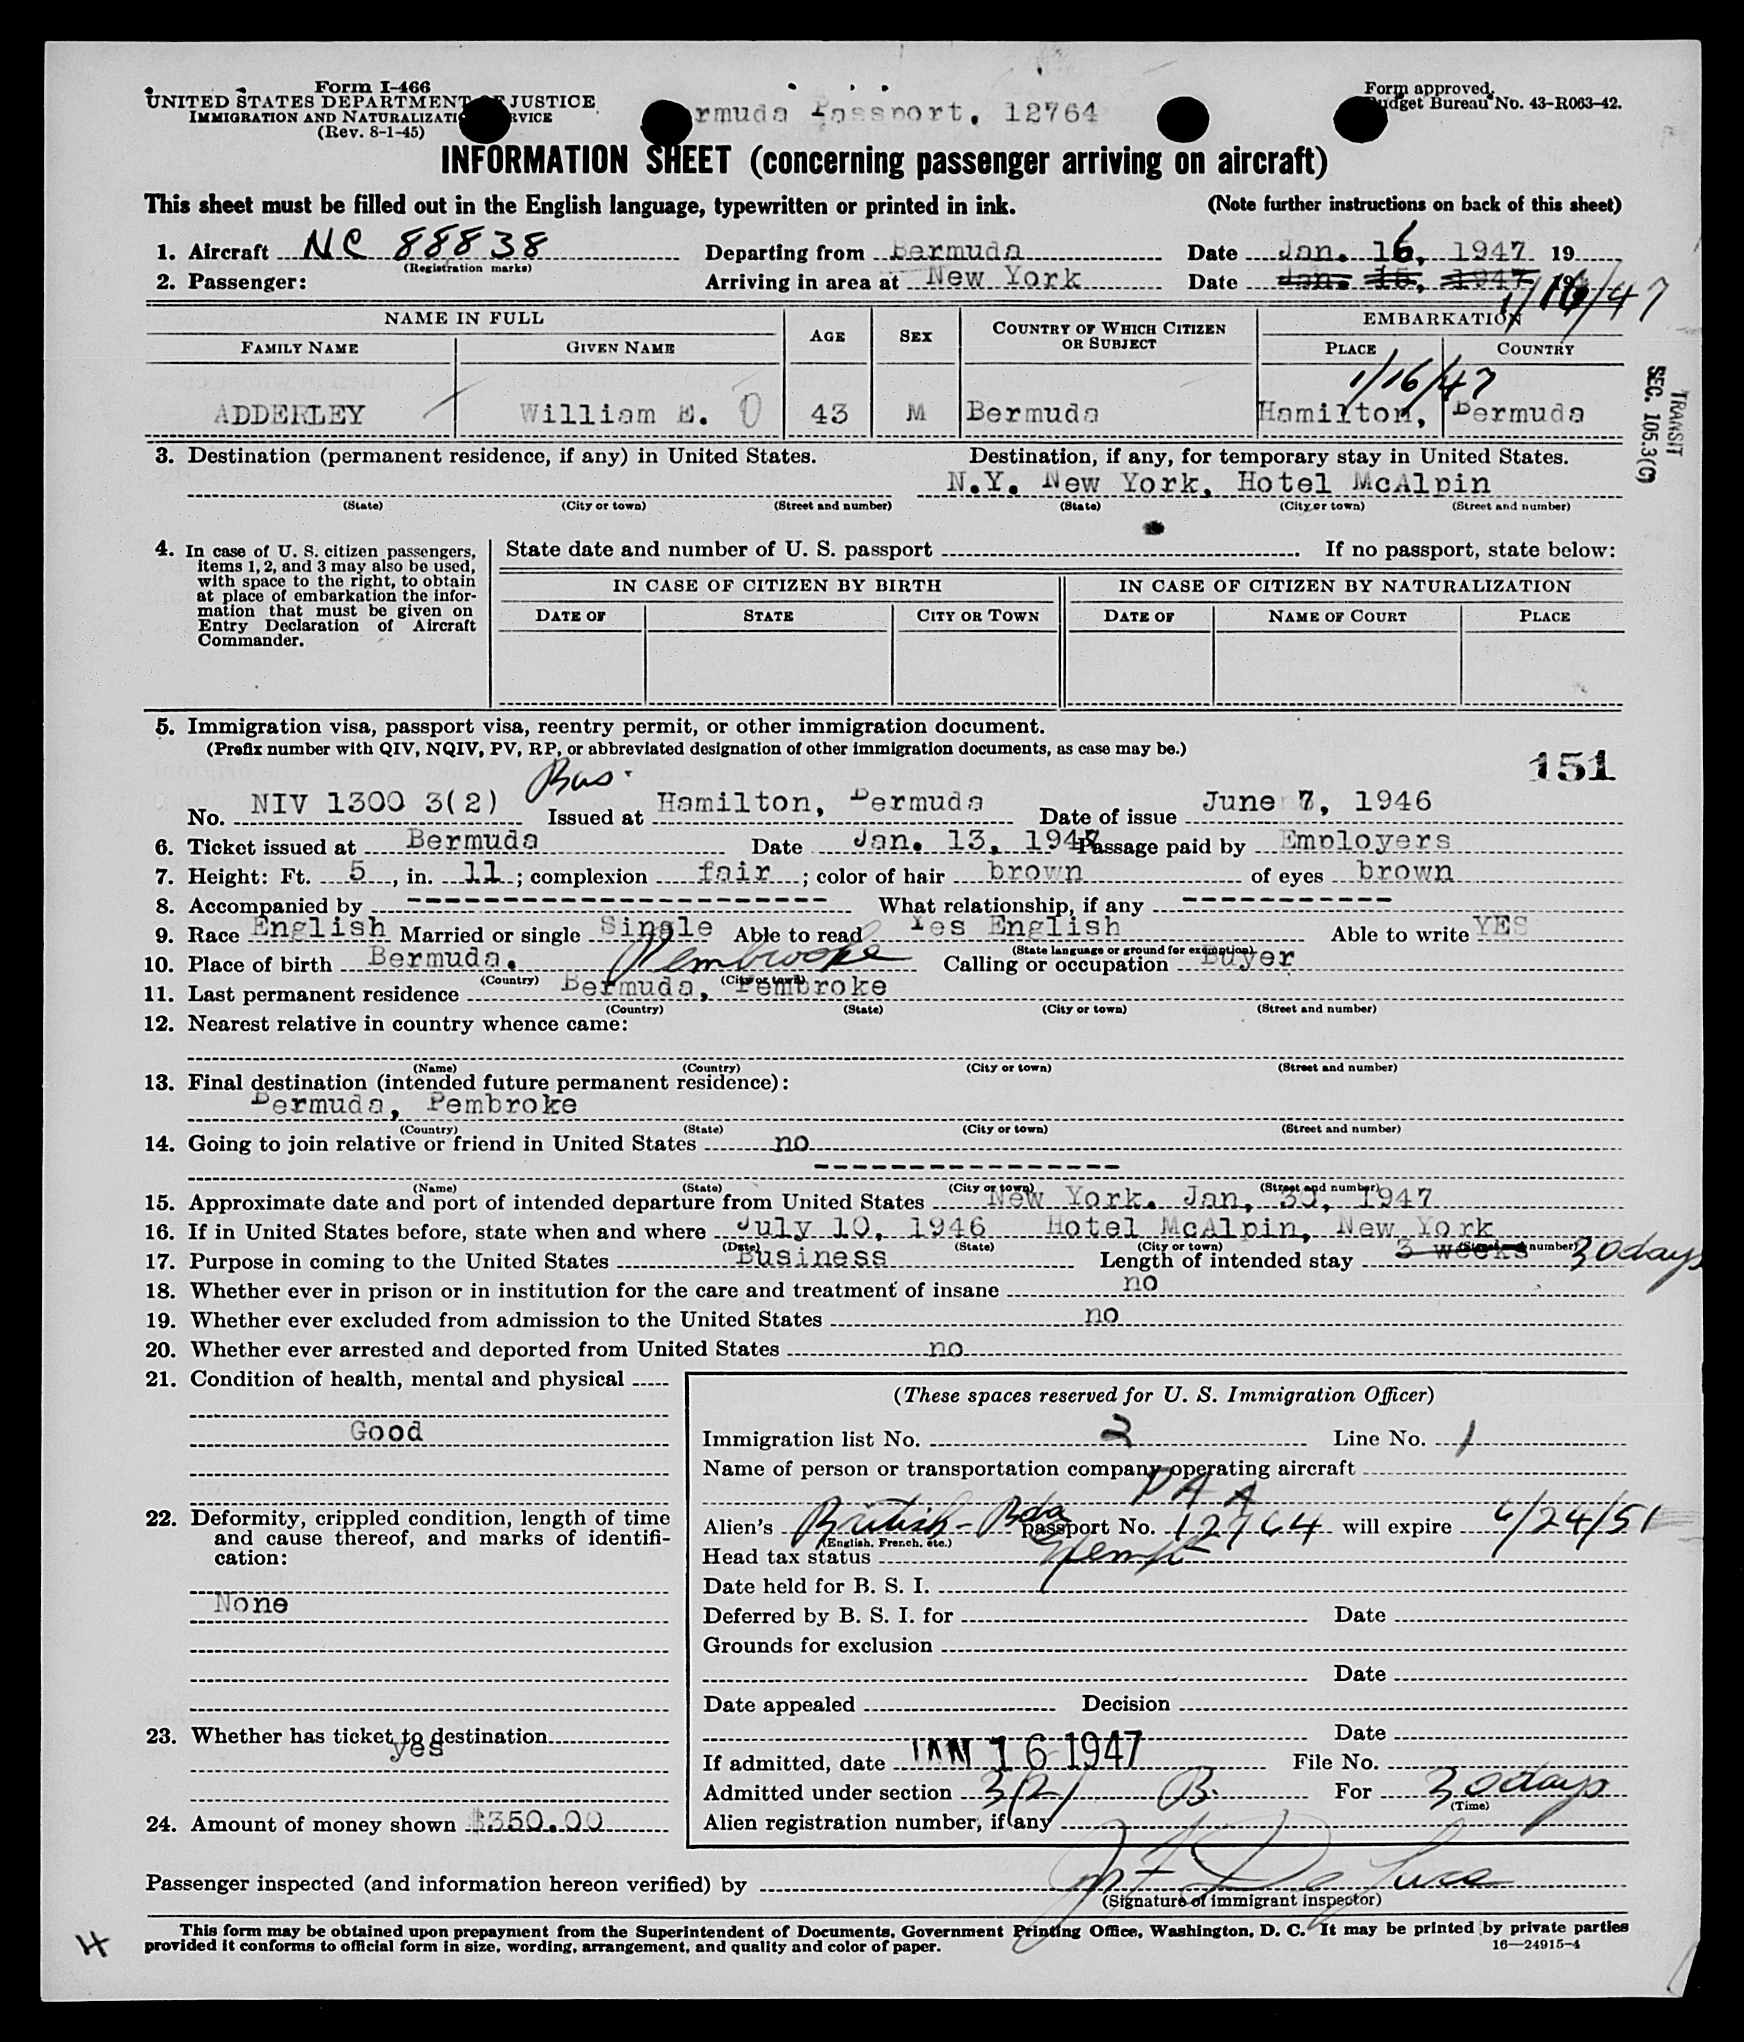 Form I-466
UNITED STATES DEPARTMENT OF JUSTICE
IMMIGRATION AND NATURALIZATION SERVICE
(Rev. 8-1-45)
rmuda Passport, 12764
Form approved.
Budget Bureau No. 43-R063-42.
INFORMATION SHEET (concerning passenger arriving on aircraft)
This sheet must be filled out in the English language, typewritten or printed in ink. (Note further instructions on back of this sheet)
1. Aircraft NC 88838 Departing from Bermuda Date Jan. 16, 1947 19
(Registration marks)
2. Passenger: Arriving in area at New York Date Jan. 15, 1947 19 1/16/47
NAME IN FULL AGE SEX COUNTRY OF WHICH CITIZEN OR SUBJECT EMBARKATION
FAMILY NAME GIVEN NAME PLACE COUNTRY
1/16/47
ADDERLEY William E. 43 M Bermuda Hamilton, Bermuda
TRANSIT
SEC. 105.3(C)
3. Destination (permanent residence, if any) in United States. Destination, if any, for temporary stay in United States.
N.Y. New York, Hotel McAlpin
(State) (City or town) (Street and number) (State) (City or town) (Street and number)
4. In case of U. S. citizen passengers, items 1, 2, and 3 may also be used, with space to the right, to obtain at place of embarkation the information that must be given on Entry Declaration of Aircraft Commander.
State date and number of U. S. passport . If no passport, state below:
IN CASE OF CITIZEN BY BIRTH IN CASE OF CITIZEN BY NATURALIZATION
DATE OF STATE CITY OR TOWN DATE OF NAME OF COURT PLACE
5. Immigration visa, passport visa, reentry permit, or other immigration document.
(Prefix number with QIV, NQIV, PV, RP, or abbreviated designation of other immigration documents, as case may be.)
151
Bus.
No. NIV 1300 3(2) Issued at Hamilton, Bermuda Date of issue June 7, 1946
6. Ticket issued at Bermuda Date Jan. 13, 1947 Passage paid by Employers
7. Height: Ft. 5, in. 11; complexion fair; color of hair brown of eyes brown
8. Accompanied by ---------------------- What relationship, if any ------------
9. Race English Married or single Single Able to read Yes English Able to write YES
(State language or ground for exemption)
10. Place of birth Bermuda. Pembroke Calling or occupation Buyer
(Country) (City or town)
11. Last permanent residence Bermuda, Pembroke
(Country) (State) (City or town) (Street and number)
12. Nearest relative in country whence came:
(Name) (Country) (City or town) (Street and number)
13. Final destination (intended future permanent residence):
Bermuda, Pembroke
(Country) (State) (City or town) (Street and number)
14. Going to join relative or friend in United States no
----------------
(Name) (State) (City or town) (Street and number)
15. Approximate date and port of intended departure from United States New York. Jan, 30, 1947
16. If in United States before, state when and where July 10, 1946 Hotel McAlpin, New York
(Date) (State) (City or town) (Street and number)
17. Purpose in coming to the United States Business Length of intended stay 3 weeks 30 days
18. Whether ever in prison or in institution for the care and treatment of insane no
19. Whether ever excluded from admission to the United States no
20. Whether ever arrested and deported from United States no
21. Condition of health, mental and physical
Good
22. Deformity, crippled condition, length of time and cause thereof, and marks of identification:
None
23. Whether has ticket to destination
yes
24. Amount of money shown $350.00
(These spaces reserved for U. S. Immigration Officer)
Immigration list No. 2 Line No. 1
Name of person or transportation company operating aircraft
PAA
Alien's British-Bda passport No. 12764 will expire 6/24/51
(English, French, etc.)
Head tax status Exempt
Date held for B. S. I.
Deferred by B. S. I. for Date
Grounds for exclusion
Date
Date appealed Decision
Date
If admitted, date JAN 16 1947 File No.
Admitted under section 3(2) B. For 30 days
(Time)
Alien registration number, if any
Passenger inspected (and information hereon verified) by
(Signature of immigrant inspector)
This form may be obtained upon prepayment from the Superintendent of Documents, Government Printing Office, Washington, D. C. It may be printed by private parties
provided it conforms to official form in size, wording, arrangement, and quality and color of paper.
16—24915-4